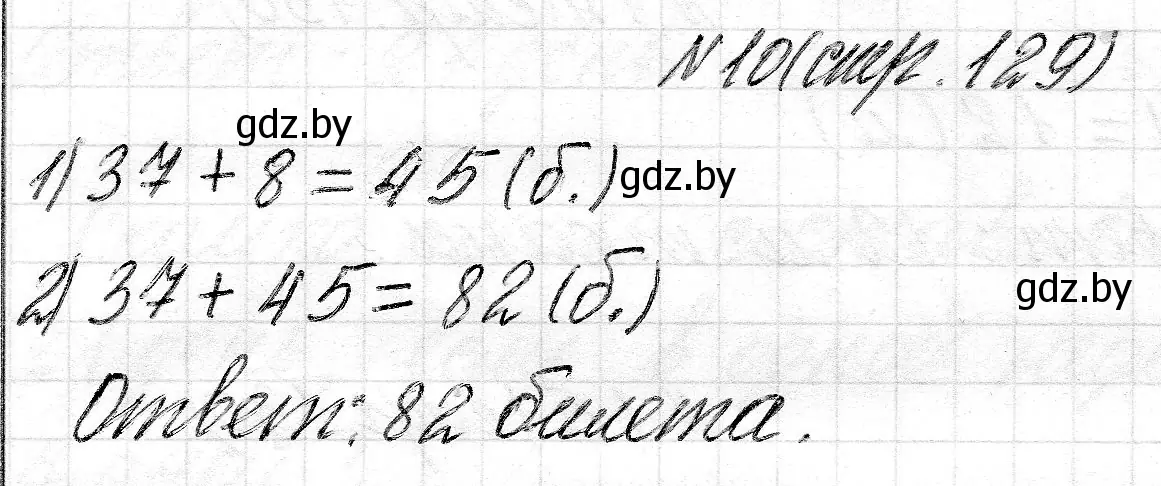 №10(стр. 129)
gdz.by
1) 37 + 8 = 45 (б.) gdz.by
2) 37 + 45 = 82 (б.) gdz.by
Ответ: 82 билета.